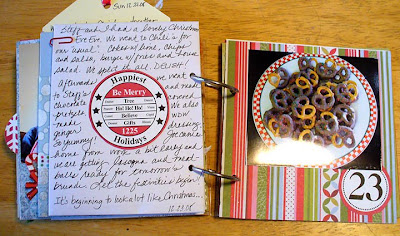 Sun 12.23.08
Staff and I had a lovely Christmas
Eve Eve. We went to Chili's for
our usual: Cokes w/lime, chips
and salsa, burger w/fries and house
salad. We split it all. DELISH!
Afterwards we went
to Staff's and made
Chocolate covered
pretzels. We also
made now
ginger dressing.
So yummy!
home from work a bit early and
we are getting lasagna and meat-
balls ready for tomorrow's
brunch. Let the festivities begin!
It's beginning to look a lot like Christmas...
12.23.08
Happiest
Be Merry
Tree
Ho! Ho! Ho!
Believe
Gifts
1225
Holidays
23